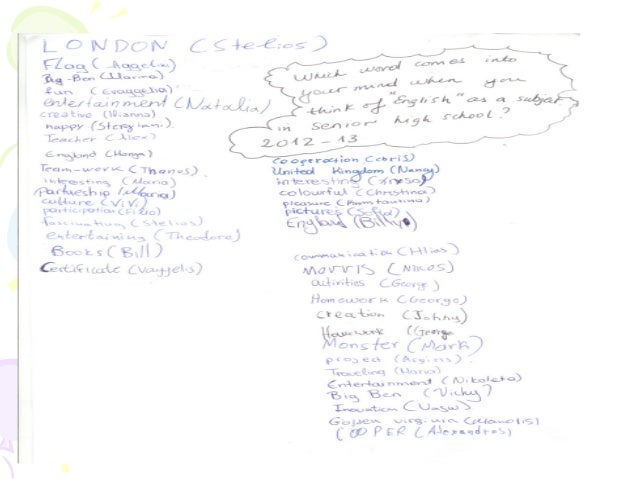 LONDON (Stelios)
Flag (Aggeliki)
Big-Ben (Marina)
fun (Evaggelia)
entertainment (Natalia)
creative (Ilianna)
happy (Stergiani)
Teacher (Alex)
England
Team-work (Thanos)
interesting (Maria)
partnership (Maria)
culture (ViVi)
participation
fascinating (Stelios)
entertaining (Theodora)
Books (Bill)
Certificate (Vaggelis)
Which word comes into
your mind when you
think of "English" as a subject
in senior high school?
2012-13
cooperation (chris)
United Kingdom (Nancy)
interesting
colourful (Christina)
pleasure (Konstantina)
pictures (Sofia)
England (Billy)
communication (Hlias)
MOVVIS (Nikos)
activities (George)
Homework (George)
creation (Johny)
Homework (George
Monster (Mark)
project (Argiris)
Traveling (Maria)
Entertainment (Nikoleta)
Big Ben (Vicky)
Inovation
Golden virginia (Manolis)
COOPER (Alexandros)